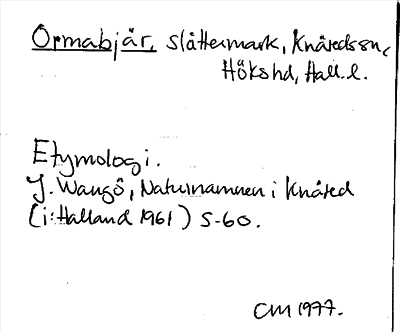 Ormabjär, slåttermark, Knäredssn,
Hökshd, Hall.l.
Etymologi.
J. Wangö, Naturnamnen i Knäred
(i: Halland 1961) S-60.
CM 1977.